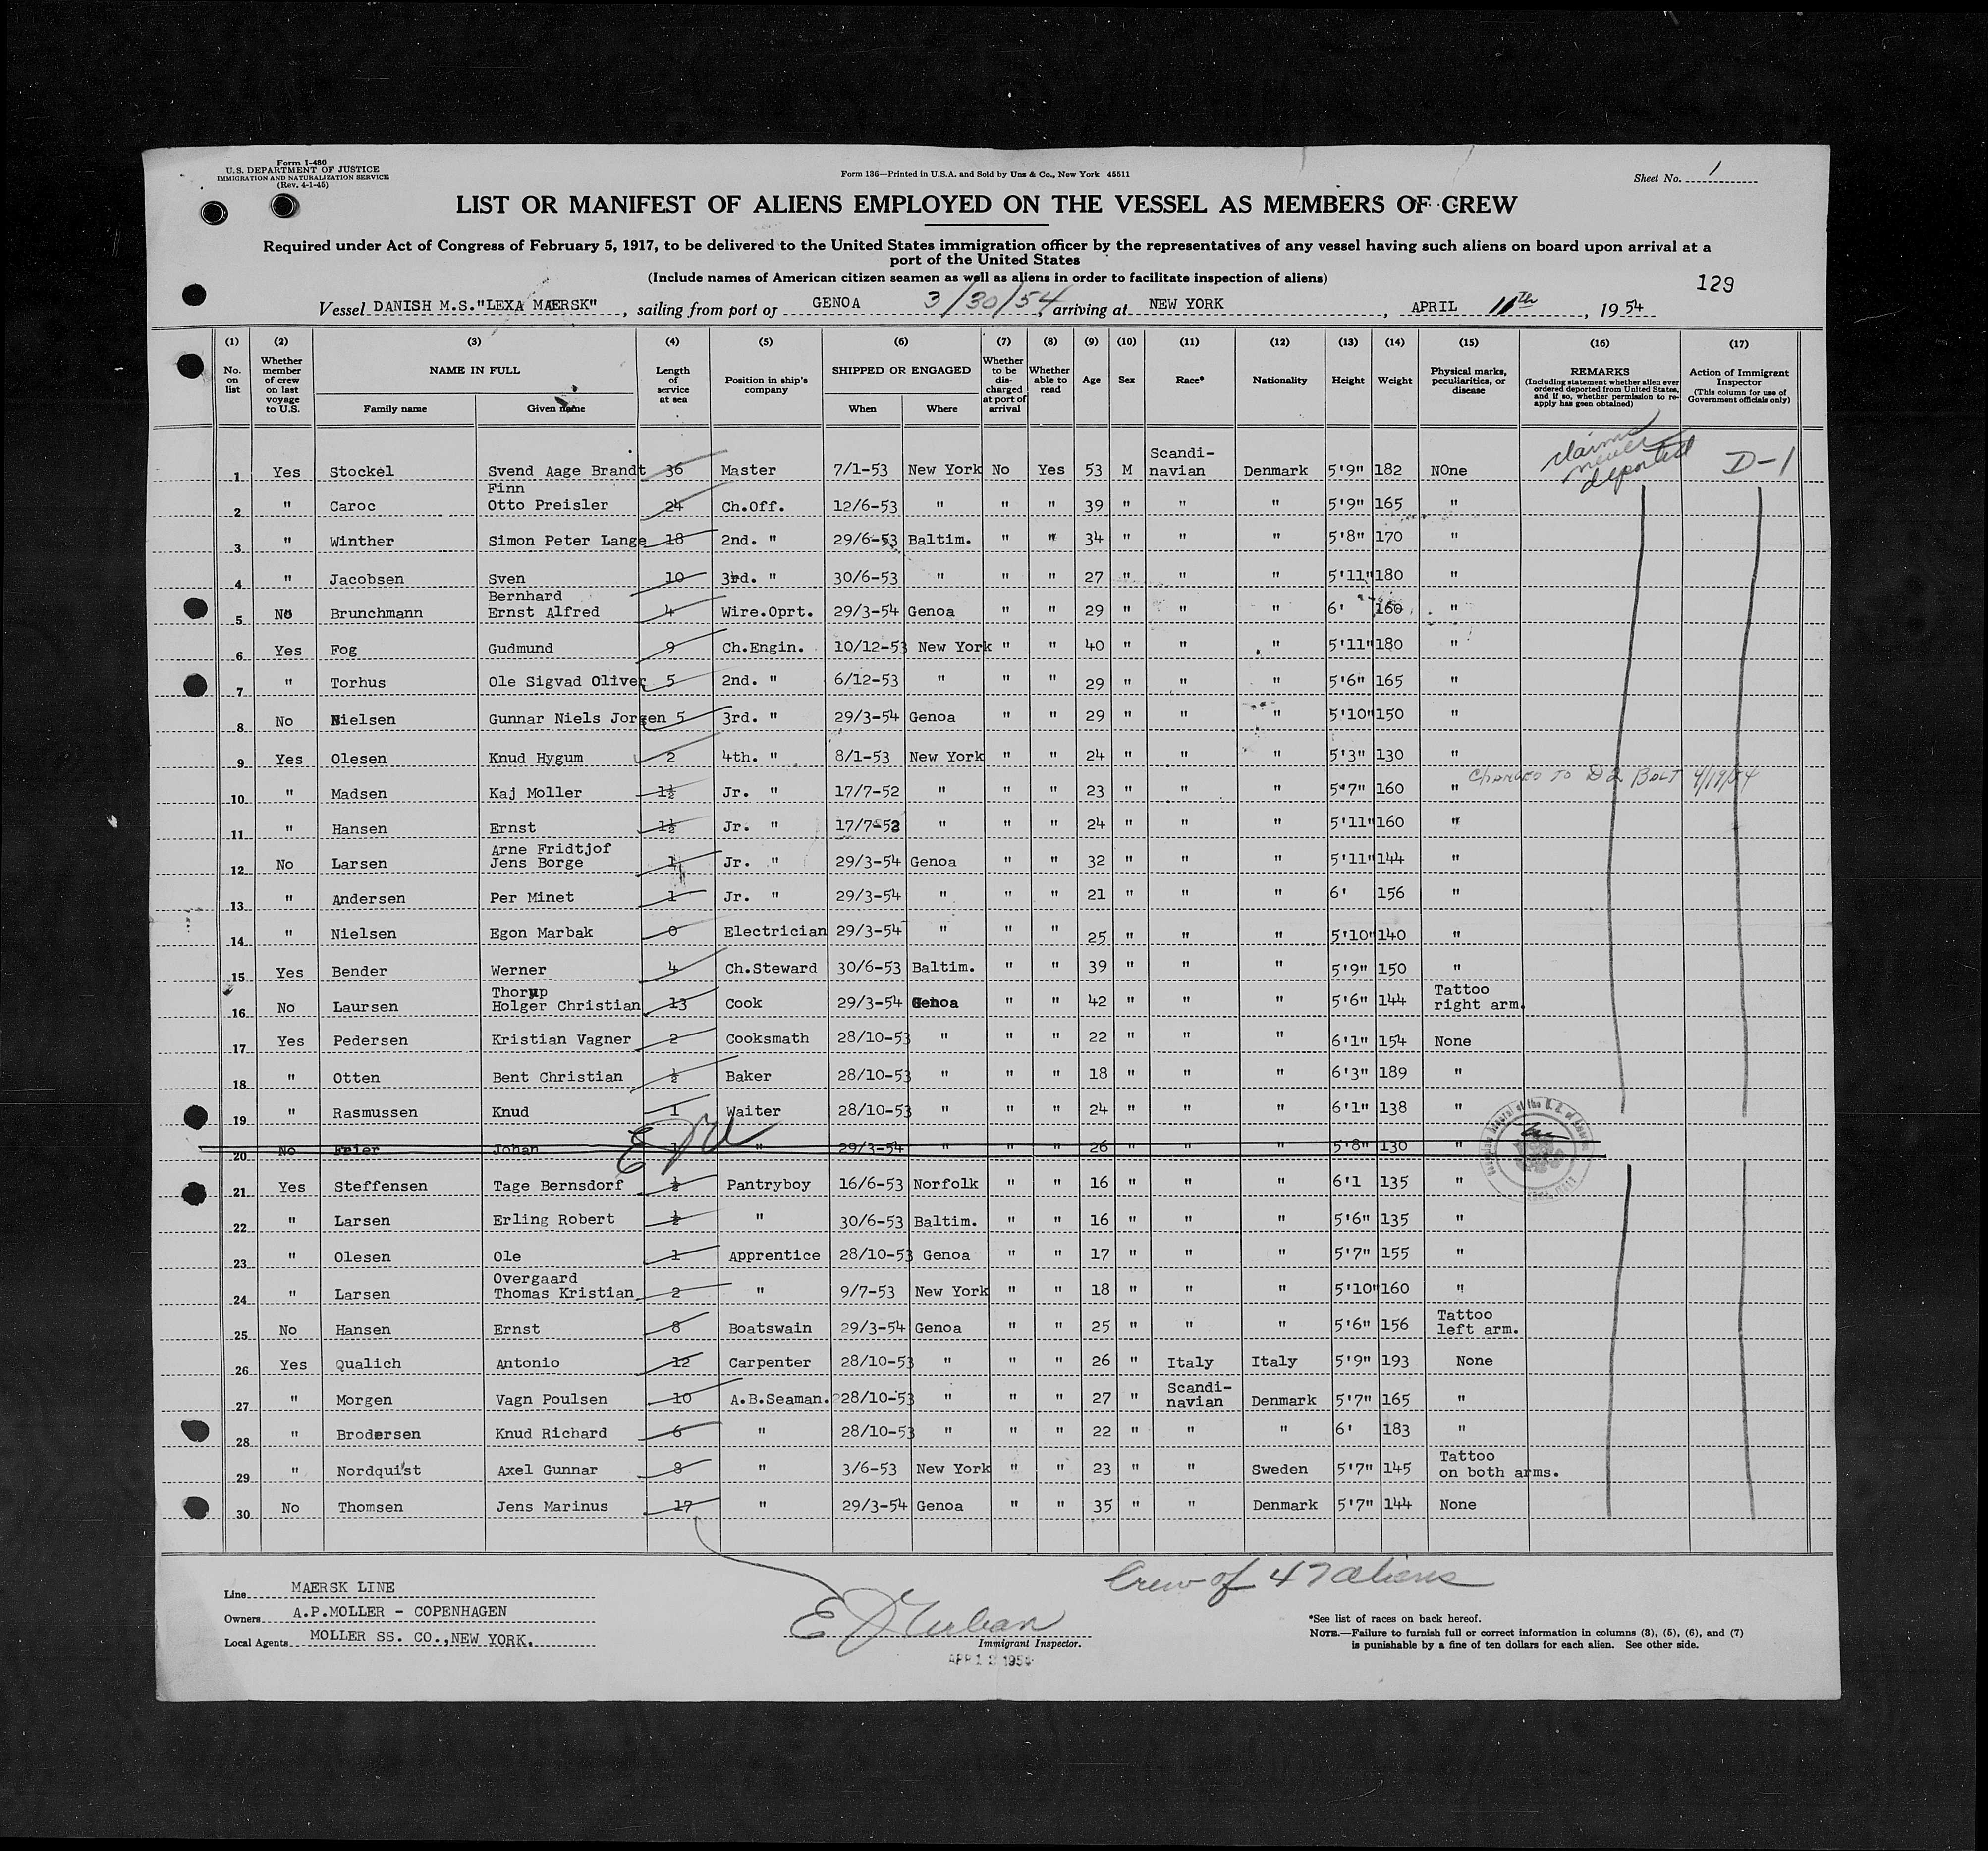 Form I-480
U.S. DEPARTMENT OF JUSTICE
IMMIGRATION AND NATURALIZATION SERVICE
(Rev. 4-1-45)
Form 136—Printed in U.S.A. and Sold by Unz & Co., New York 45511
Sheet No. 1
LIST OR MANIFEST OF ALIENS EMPLOYED ON THE VESSEL AS MEMBERS OF CREW
Required under Act of Congress of February 5, 1917, to be delivered to the United States immigration officer by the representatives of any vessel having such aliens on board upon arrival at a
port of the United States
(Include names of American citizen seamen as well as aliens in order to facilitate inspection of aliens)
129
Vessel DANISH M.S."LEXA MAERSK", sailing from port of GENOA 3/30/54, arriving at NEW YORK, APRIL 11th, 1954
(1) No. on list (2) Whether member of crew on last voyage to U.S. (3) NAME IN FULL Family name Given name (4) Length of service at sea (5) Position in ship's company (6) SHIPPED OR ENGAGED When Where (7) Whether to be discharged at port of arrival (8) Whether able to read (9) Age (10) Sex (11) Race* (12) Nationality (13) Height (14) Weight (15) Physical marks, peculiarities, or disease (16) REMARKS (Including statement whether alien ever ordered deported from United States, and if so, whether permission to re-apply has been obtained) (17) Action of Immigrant Inspector (This column for use of Government officials only)
1 Yes Stockel Svend Aage Brandt 36 Master 7/1-53 New York No Yes 53 M Scandi-navian Denmark 5'9" 182 NOne claims never deported D-1
2 " Caroc Finn Otto Preisler 24 Ch.Off. 12/6-53 " " " 39 " " " 5'9" 165 "
3 " Winther Simon Peter Lange 18 2nd. " 29/6-53 Baltim. " " 34 " " " 5'8" 170 "
4 " Jacobsen Sven 10 3rd. " 30/6-53 " " " 27 " " " 5'11" 180 "
5 No Brunchmann Bernhard Ernst Alfred 4 Wire.Oprt. 29/3-54 Genoa " " 29 " " " 6' 160 "
6 Yes Fog Gudmund 9 Ch.Engin. 10/12-53 New York " " 40 " " " 5'11" 180 "
7 " Torhus Ole Sigvad Oliver 5 2nd. " 6/12-53 " " " 29 " " " 5'6" 165 "
8 No Nielsen Gunnar Niels Jorgen 5 3rd. " 29/3-54 Genoa " " 29 " " " 5'10" 150 "
9 Yes Olesen Knud Hygum 2 4th. " 8/1-53 New York " " 24 " " " 5'3" 130 "
10 " Madsen Kaj Moller 1½ Jr. " 17/7-52 " " " 23 " " " 5'7" 160 " Changed to D2 Balt 4/19/54
11 " Hansen Ernst 1½ Jr. " 17/7-52 " " " 24 " " " 5'11" 160 "
12 No Larsen Arne Fridtjof Jens Borge 1 Jr. " 29/3-54 Genoa " " 32 " " " 5'11" 144 "
13 " Andersen Per Minet 1 Jr. " 29/3-54 " " " 21 " " " 6' 156 "
14 " Nielsen Egon Marbak 0 Electrician 29/3-54 " " " 25 " " " 5'10" 140 "
15 Yes Bender Werner 4 Ch.Steward 30/6-53 Baltim. " " 39 " " " 5'9" 150 "
16 No Laursen Thorup Holger Christian 13 Cook 29/3-54 Genoa " " 42 " " " 5'6" 144 Tattoo right arm.
17 Yes Pedersen Kristian Vagner 2 Cooksmath 28/10-53 " " " 22 " " " 6'1" 154 None
18 " Otten Bent Christian ½ Baker 28/10-53 " " " 18 " " " 6'3" 189 "
19 " Rasmussen Knud 1 Waiter 28/10-53 " " " 24 " " " 6'1" 138 "
20 No Feier Johan 1 " 29/3-54 " " " 26 " " " 5'8" 130 "
21 Yes Steffensen Tage Bernsdorf ½ Pantryboy 16/6-53 Norfolk " " 16 " " " 6'1 135 "
22 " Larsen Erling Robert ½ " 30/6-53 Baltim. " " 16 " " " 5'6" 135 "
23 " Olesen Ole 1 Apprentice 28/10-53 Genoa " " 17 " " " 5'7" 155 "
24 " Larsen Overgaard Thomas Kristian 2 " 9/7-53 New York " " 18 " " " 5'10" 160 "
25 No Hansen Ernst 8 Boatswain 29/3-54 Genoa " " 25 " " " 5'6" 156 Tattoo left arm.
26 Yes Qualich Antonio 12 Carpenter 28/10-53 " " " 26 " Italy Italy 5'9" 193 None
27 " Morgen Vagn Poulsen 10 A.B.Seaman. 28/10-53 " " " 27 " Scandi-navian Denmark 5'7" 165 "
28 " Brodersen Knud Richard 6 " 28/10-53 " " " 22 " " " 6' 183 "
29 " Nordquist Axel Gunnar 8 " 3/6-53 New York " " 23 " " Sweden 5'7" 145 Tattoo on both arms.
30 No Thomsen Jens Marinus 17 " 29/3-54 Genoa " " 35 " " Denmark 5'7" 144 None
Crew of 47 aliens
Line MAERSK LINE
Owners A.P.MOLLER - COPENHAGEN
Local Agents MOLLER SS. CO.,NEW YORK.
Immigrant Inspector.
APR 12 1954
*See list of races on back hereof.
NOTE.—Failure to furnish full or correct information in columns (3), (5), (6), and (7)
is punishable by a fine of ten dollars for each alien. See other side.